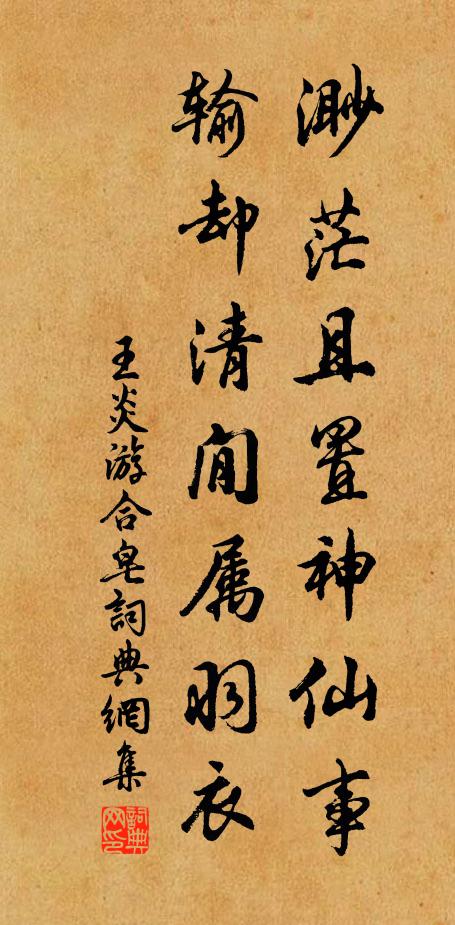 渺茫且置神仙事
输却清闲属羽衣
王炎游合皂詞典網集
詞典網印